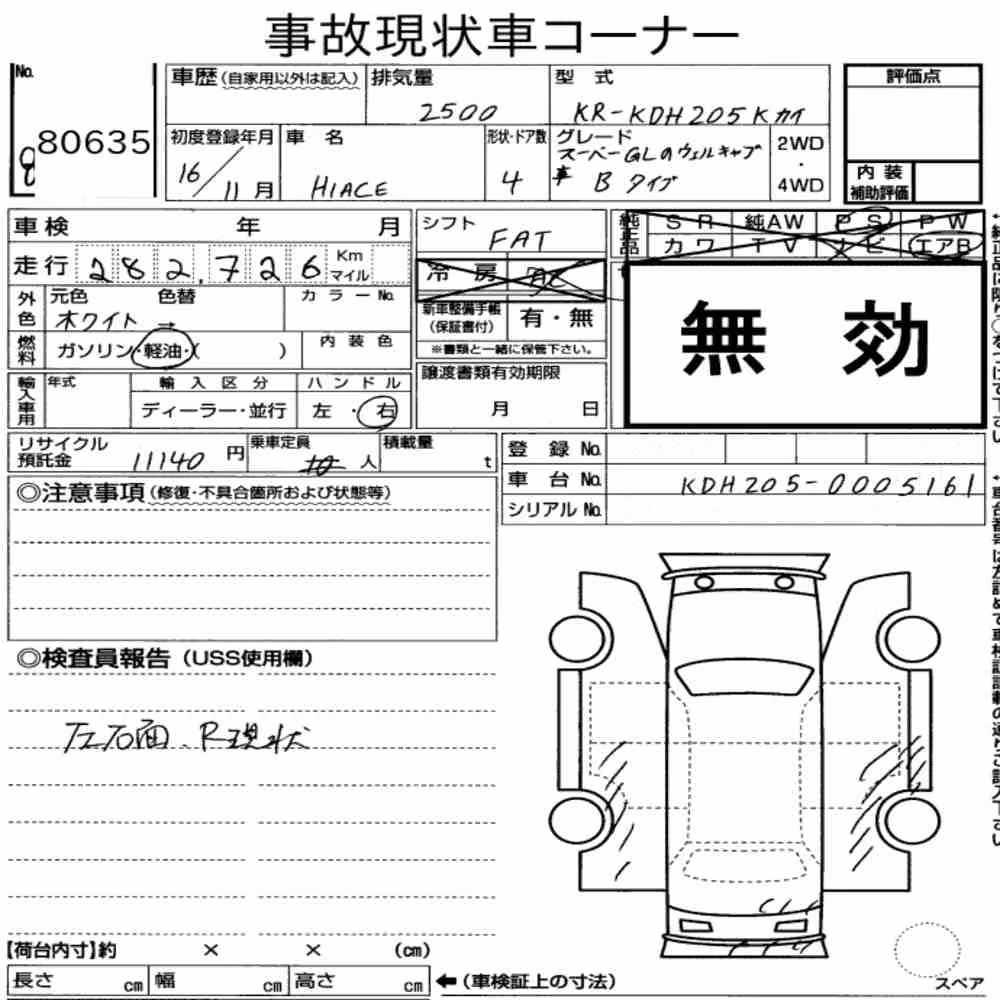 事故現状車コーナー
No. 80635
車歴(自家用以外は記入) 排気量 2500 型式 KR-KDH205Kカイ
初度登録年月 16/11月 車名 HIACE 形状・ドア数 4 グレード スーパーGLのウェルキャブ車 Bタイプ 2WD・4WD
評価点
内装補助評価
車検 年 月
走行 282,726 Km マイル
外色 元色 ホワイト → 色替 カラーNo.
燃料 ガソリン・軽油・( ) 内装色
輸入車用 年式 輸入区分 ディーラー・並行 ハンドル 左・右
シフト FAT
冷房 AC
新車整備手帳(保証書付) 有・無
※書類と一緒に保管下さい。
譲渡書類有効期限 月 日
純正品 SR 純AW PS PW
カワ TV ナビ エアB
無効
リサイクル預託金 11140円 乗車定員 10人 積載量 t
登録No.
車台No. KDH205-0005161
シリアルNo.
◎注意事項(修復・不具合箇所および状態等)
◎検査員報告(USS使用欄)
左右面、R現状
【荷台内寸】約 × × (cm)
長さ cm 幅 cm 高さ cm ←(車検証上の寸法)
スペア